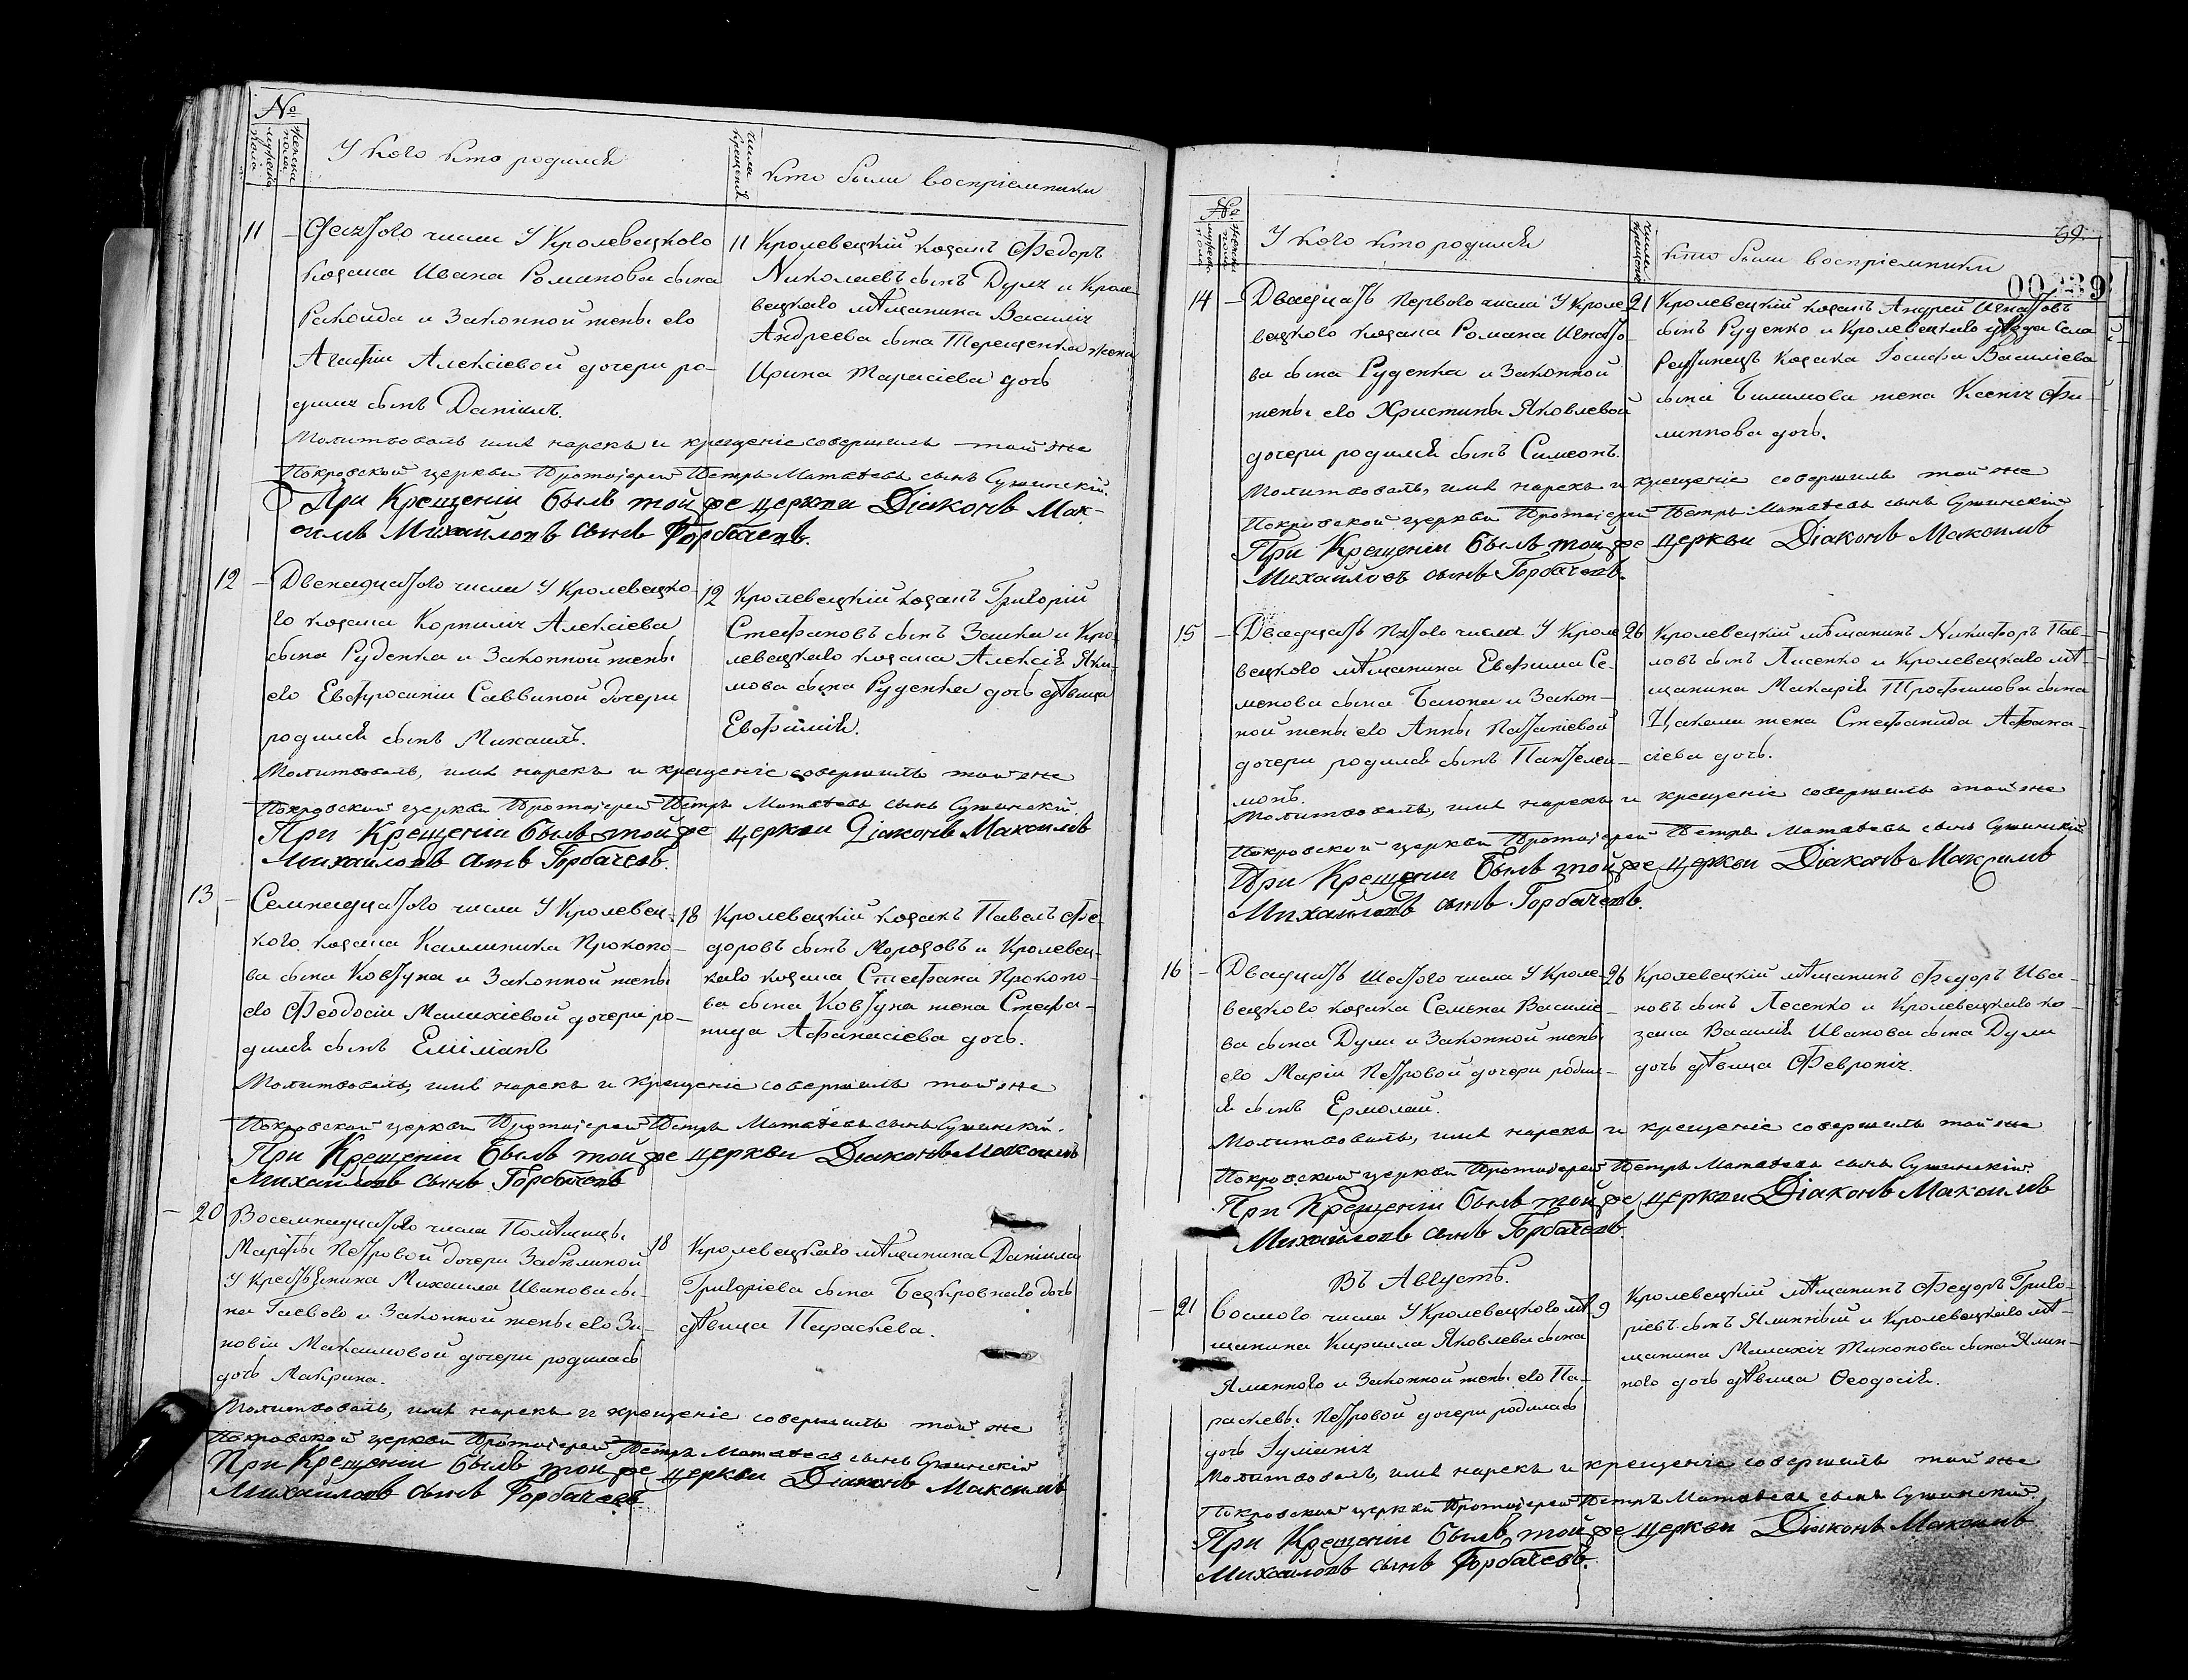 №
мужеска пола
женска пола
У кого кто родился
числа крещенія
кто были воспріемники
11
Десятого числа У Кролевецкого
козака Ивана Романова сына
Ракоида и Законной жены его
Агафіи Алексіевой дочери ро-
дился сынъ Даніилъ.
11
Кролевецкій козакъ Федоръ
Николаевъ сынъ Дуля и Кроле-
вецкаго мѣщанина Василія
Андреева сына Терещенка жена
Ирина Тарасіева дочь
Молитвовалъ имя нарекъ и крещеніе совершилъ той же
Покровской церкви Протоіерей Петръ Матвѣевъ сынъ Сушинскій.
При Крещеніи былъ той же церкви Діаконъ Мак-
симъ Михайловъ сынъ Горбачевъ.
12
Двенадцатого числа У Кролевецко-
го козака Корнилія Алексіева
сына Руденка и Законной жены
его Евфросиніи Саввиной дочери
родился сынъ Михаилъ.
12
Кролевецкій козакъ Григорій
Стефановъ сынъ Заика и Кро-
левецкаго козака Алексія Яки-
мова сына Руденка дочь дѣвица
Евфимія.
Молитвовалъ, имя нарекъ и крещеніе совершилъ той же
Покровской церкви Протоіерей Петръ Матвѣевъ сынъ Сушинскій.
При Крещеніи былъ той же церкви Діаконъ Максимъ
Михайловъ сынъ Горбачевъ.
13
Семнадцатого числа У Кролевец-
кого козака Каллиника Прокопо-
ва сына Ковтуна и Законной жены
его Феодосіи Малахіевой дочери ро-
дился сынъ Емиліанъ
18
Кролевецкій козакъ Павелъ Фе-
доровъ сынъ Морозовъ и Кролевец-
каго козака Стефана Прокопо-
ва сына Ковтуна жена Стефа-
нида Афанасіева дочь.
Молитвовалъ, имя нарекъ и крещеніе совершилъ той же
Покровской церкви Протоіерей Петръ Матвѣевъ сынъ Сушинскій.
При Крещеніи былъ той же церкви Діаконъ Максимъ
Михайловъ сынъ Горбачевъ
20
Восемнадцатого числа Помѣщицы
Марфы Петровой дочери Забѣлиной
У Крестьянина Михаила Иванова сы-
на Гаевого и Законной жены его Зи-
новіи Максимовой дочери родилась
дочь Макрина.
18
Кролевецкаго мѣщанина Даніила
Григоріева сына Безкровнаго дочь
дѣвица Параскева.
Молитвовалъ, имя нарекъ и крещеніе совершилъ той же
Покровской церкви Протоіерей Петръ Матвѣевъ сынъ Сушинскій
При Крещеніи былъ той же церкви Діаконъ Максимъ
Михайловъ сынъ Горбачевъ
№
мужеска пола
женска пола
У кого кто родился
числа крещенія
кто были воспріемники
39.
00239
14
Двадцать Первого числа У Кроле-
вецкого козака Романа Игнато-
ва сына Руденка и Законной
жены его Христины Яковлевой
дочери родился сынъ Симеонъ.
21
Кролевецкій козакъ Андрей Игнатовъ
сынъ Руденко и Кролевецкаго уѣзда села
Козака Іосифа Василіева
сына жена Ксенія Фи-
липпова дочь.
Молитвовалъ, имя нарекъ и крещеніе совершилъ той же
Покровской церкви Протоіерей Петръ Матвѣевъ сынъ Сушинскій
При Крещеніи былъ той же церкви Діаконъ Максимъ
Михайловъ сынъ Горбачевъ.
15
Двадцать Пятого числа У Кроле-
вецкого мѣщанина Евфима Се-
менова сына и Закон-
ной жены его Анны Потапіевой
дочери родился сынъ Пантелеи-
монъ.
26
Кролевецкій мѣщанинъ Никифоръ Пав-
ловъ сынъ Лисенко и Кролевецкаго мѣ-
щанина Макарія Трофимова сына
Цакала жена Стефанида Афана-
сіева дочь.
Молитвовалъ, имя нарекъ и крещеніе совершилъ той же
Покровской церкви Протоіерей Петръ Матвѣевъ сынъ Сушинскій
При Крещеніи былъ той же церкви Діаконъ Максимъ
Михайловъ сынъ Горбачевъ.
16
Двадцать Шестого числа У Кроле-
вецкого козака Семена Василіе-
ва сына Дули и Законной жены
его Маріи Петровой дочери родил-
ся сынъ Ермолай.
26
Кролевецкій мѣщанинъ Федоръ Ива-
новъ сынъ Лесенко и Кролевецкаго ко-
зака Василія Иванова сына Дули
дочь дѣвица Февронія.
Молитвовалъ, имя нарекъ и крещеніе совершилъ той же
Покровской церкви Протоіерей Петръ Матвѣевъ сынъ Сушинскій
При Крещеніи былъ той же церкви Діаконъ Максимъ
Михайловъ сынъ Горбачевъ.
Въ Августѣ.
21
Восмого числа У Кролевецкого мѣ-
щанина Кирилла Яковлева сына
Ялинного и Законной жены его Па-
раскевы Петровой дочери родилась
дочь Іуліанія
9
Кролевецкій мѣщанинъ Федоръ Григо-
ріевъ сынъ Ялинный и Кролевецкаго мѣ-
щанина Малахія Тихонова сына Ялин-
ного дочь дѣвица Феодосія.
Молитвовалъ, имя нарекъ и крещеніе совершилъ той же
Покровской церкви Протоіерей Петръ Матвѣевъ сынъ Сушинскій
При Крещеніи былъ той же церкви Діаконъ Максимъ
Михайловъ сынъ Горбачевъ.